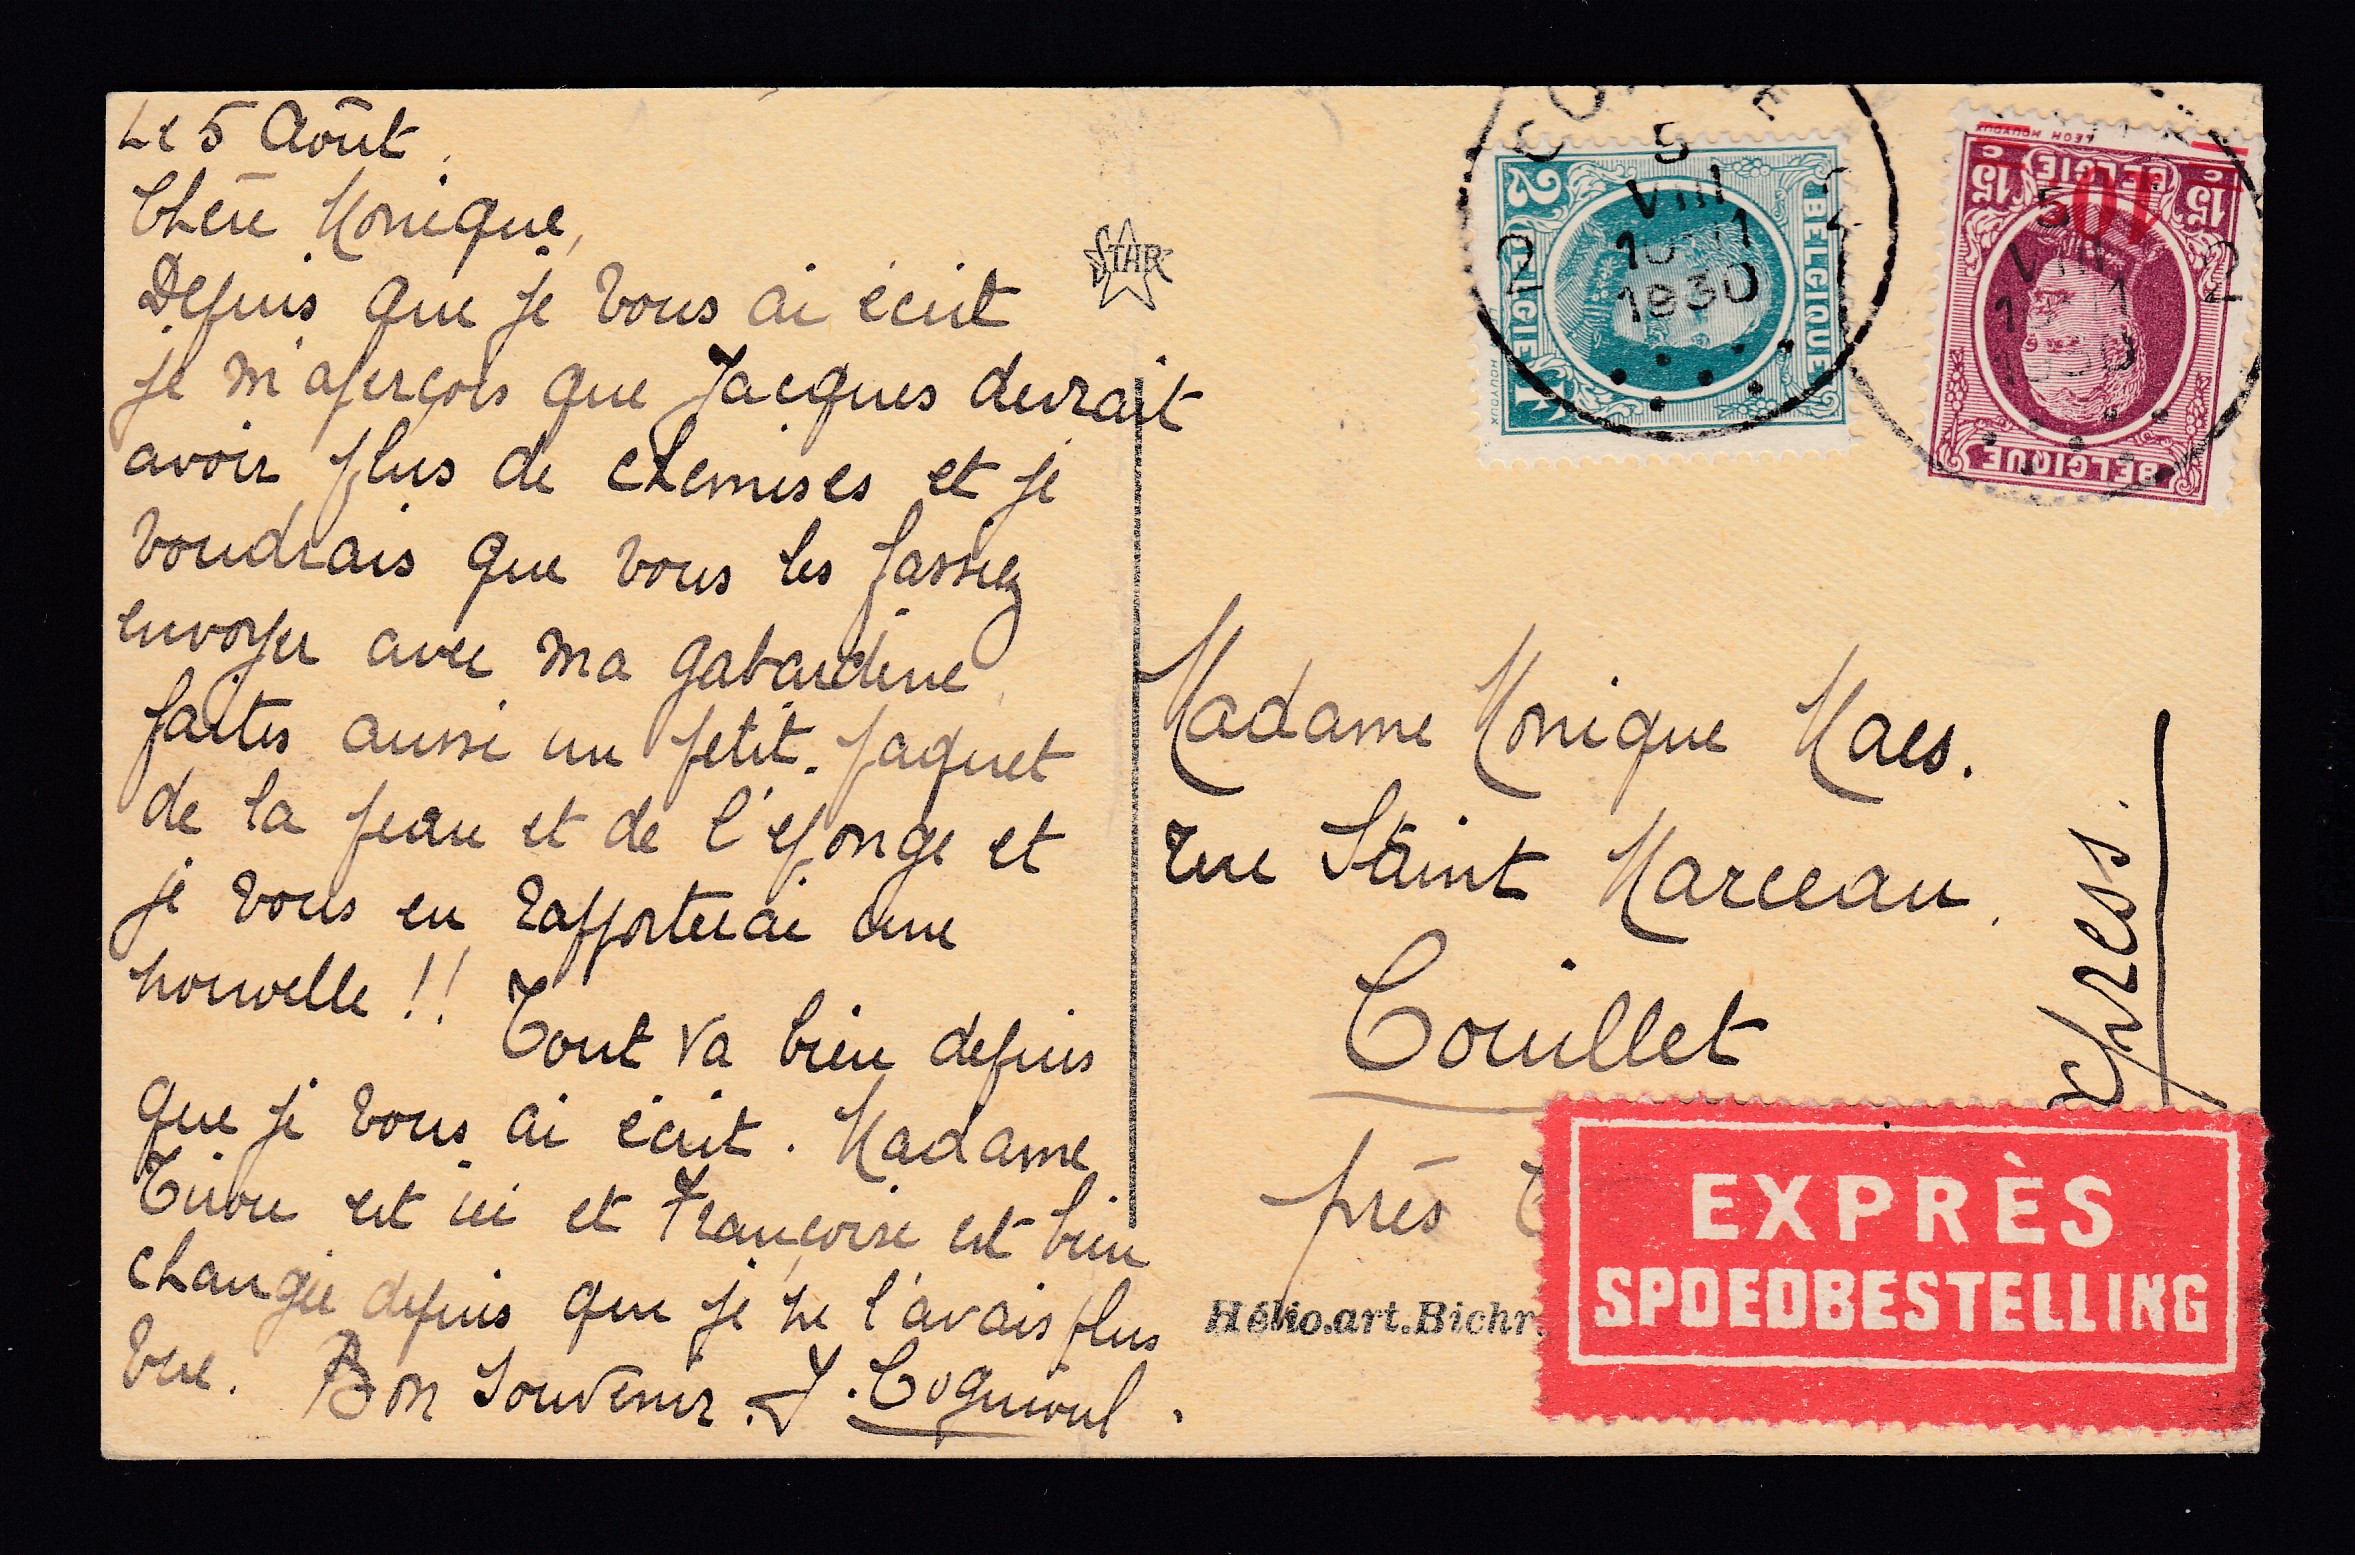 Le 5 Août.
Chère Monique,
Depuis que je vous ai écrit
je m'aperçois que Jacques devrait
avoir plus de chemises et je
voudrais que vous les fassiez
envoyer avec ma gabardine
faites aussi un petit paquet
de la peau et de l'éponge et
je vous en rapporterai une
nouvelle !! Tout va bien depuis
que je vous ai écrit. Madame
Tirou est ici et Françoise est bien
changée depuis que je ne l'avais plus
vue. Bon Souvenir. J. Coquioul.
STAR
5
VIII
10-11
1930
2
2 F
BELGIQUE
BELGIË
HOUYOUX
5
VIII
10-11
1930
2
LEON HOUYOUX
15 c
BELGIË
15 c
10 c
BELGIQUE
Madame Monique Maes.
rue Saint Marceau.
Couillet
près
Express.
Hélio.art.Bichr.
EXPRÈS
SPOEDBESTELLING